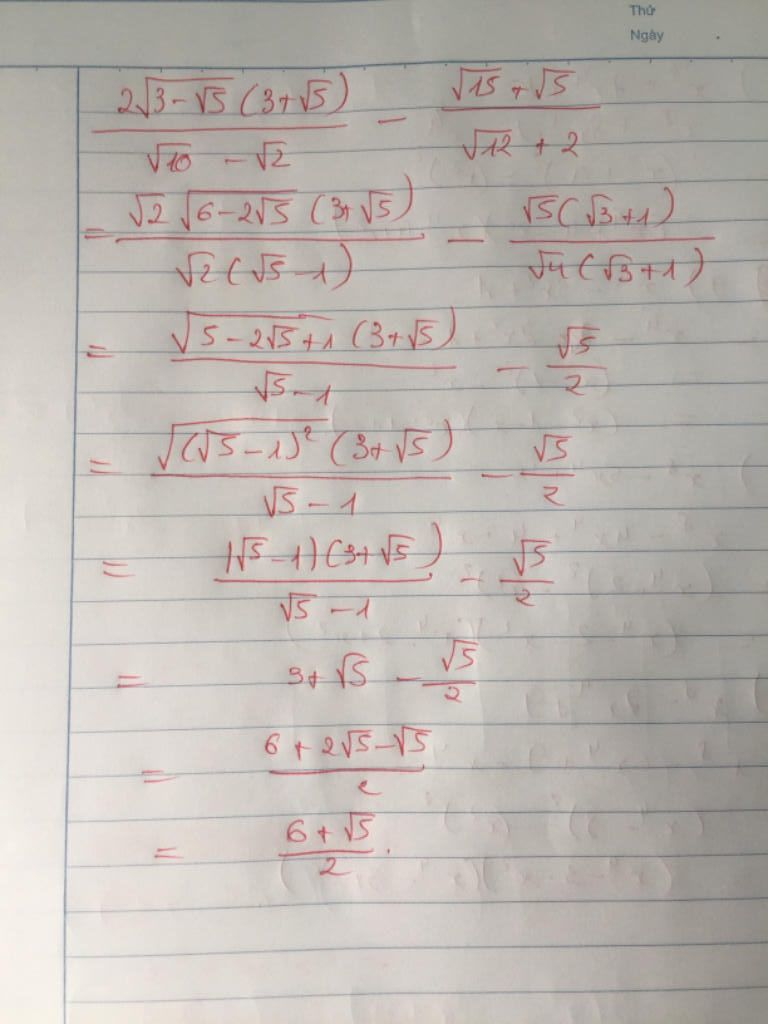 Thứ
Ngày
\frac{2\sqrt{3-\sqrt{5}}(3+\sqrt{5})}{\sqrt{10}-\sqrt{2}} - \frac{\sqrt{15}+\sqrt{5}}{\sqrt{12}+2}
= \frac{\sqrt{2}\sqrt{6-2\sqrt{5}}(3+\sqrt{5})}{\sqrt{2}(\sqrt{5}-1)} - \frac{\sqrt{5}(\sqrt{3}+1)}{\sqrt{4}(\sqrt{3}+1)}
= \frac{\sqrt{5-2\sqrt{5}+1}(3+\sqrt{5})}{\sqrt{5}-1} - \frac{\sqrt{5}}{2}
= \frac{\sqrt{(\sqrt{5}-1)^2}(3+\sqrt{5})}{\sqrt{5}-1} - \frac{\sqrt{5}}{2}
= \frac{|\sqrt{5}-1)(3+\sqrt{5})}{\sqrt{5}-1} - \frac{\sqrt{5}}{2}
= 3+\sqrt{5} - \frac{\sqrt{5}}{2}
= \frac{6+2\sqrt{5}-\sqrt{5}}{2}
= \frac{6+\sqrt{5}}{2}.